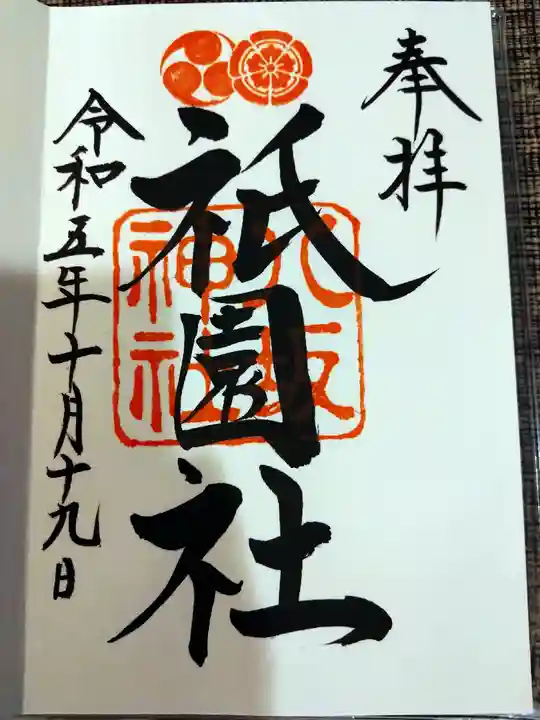 奉拝
祇園社
八坂
神社
令和五年十月十九日